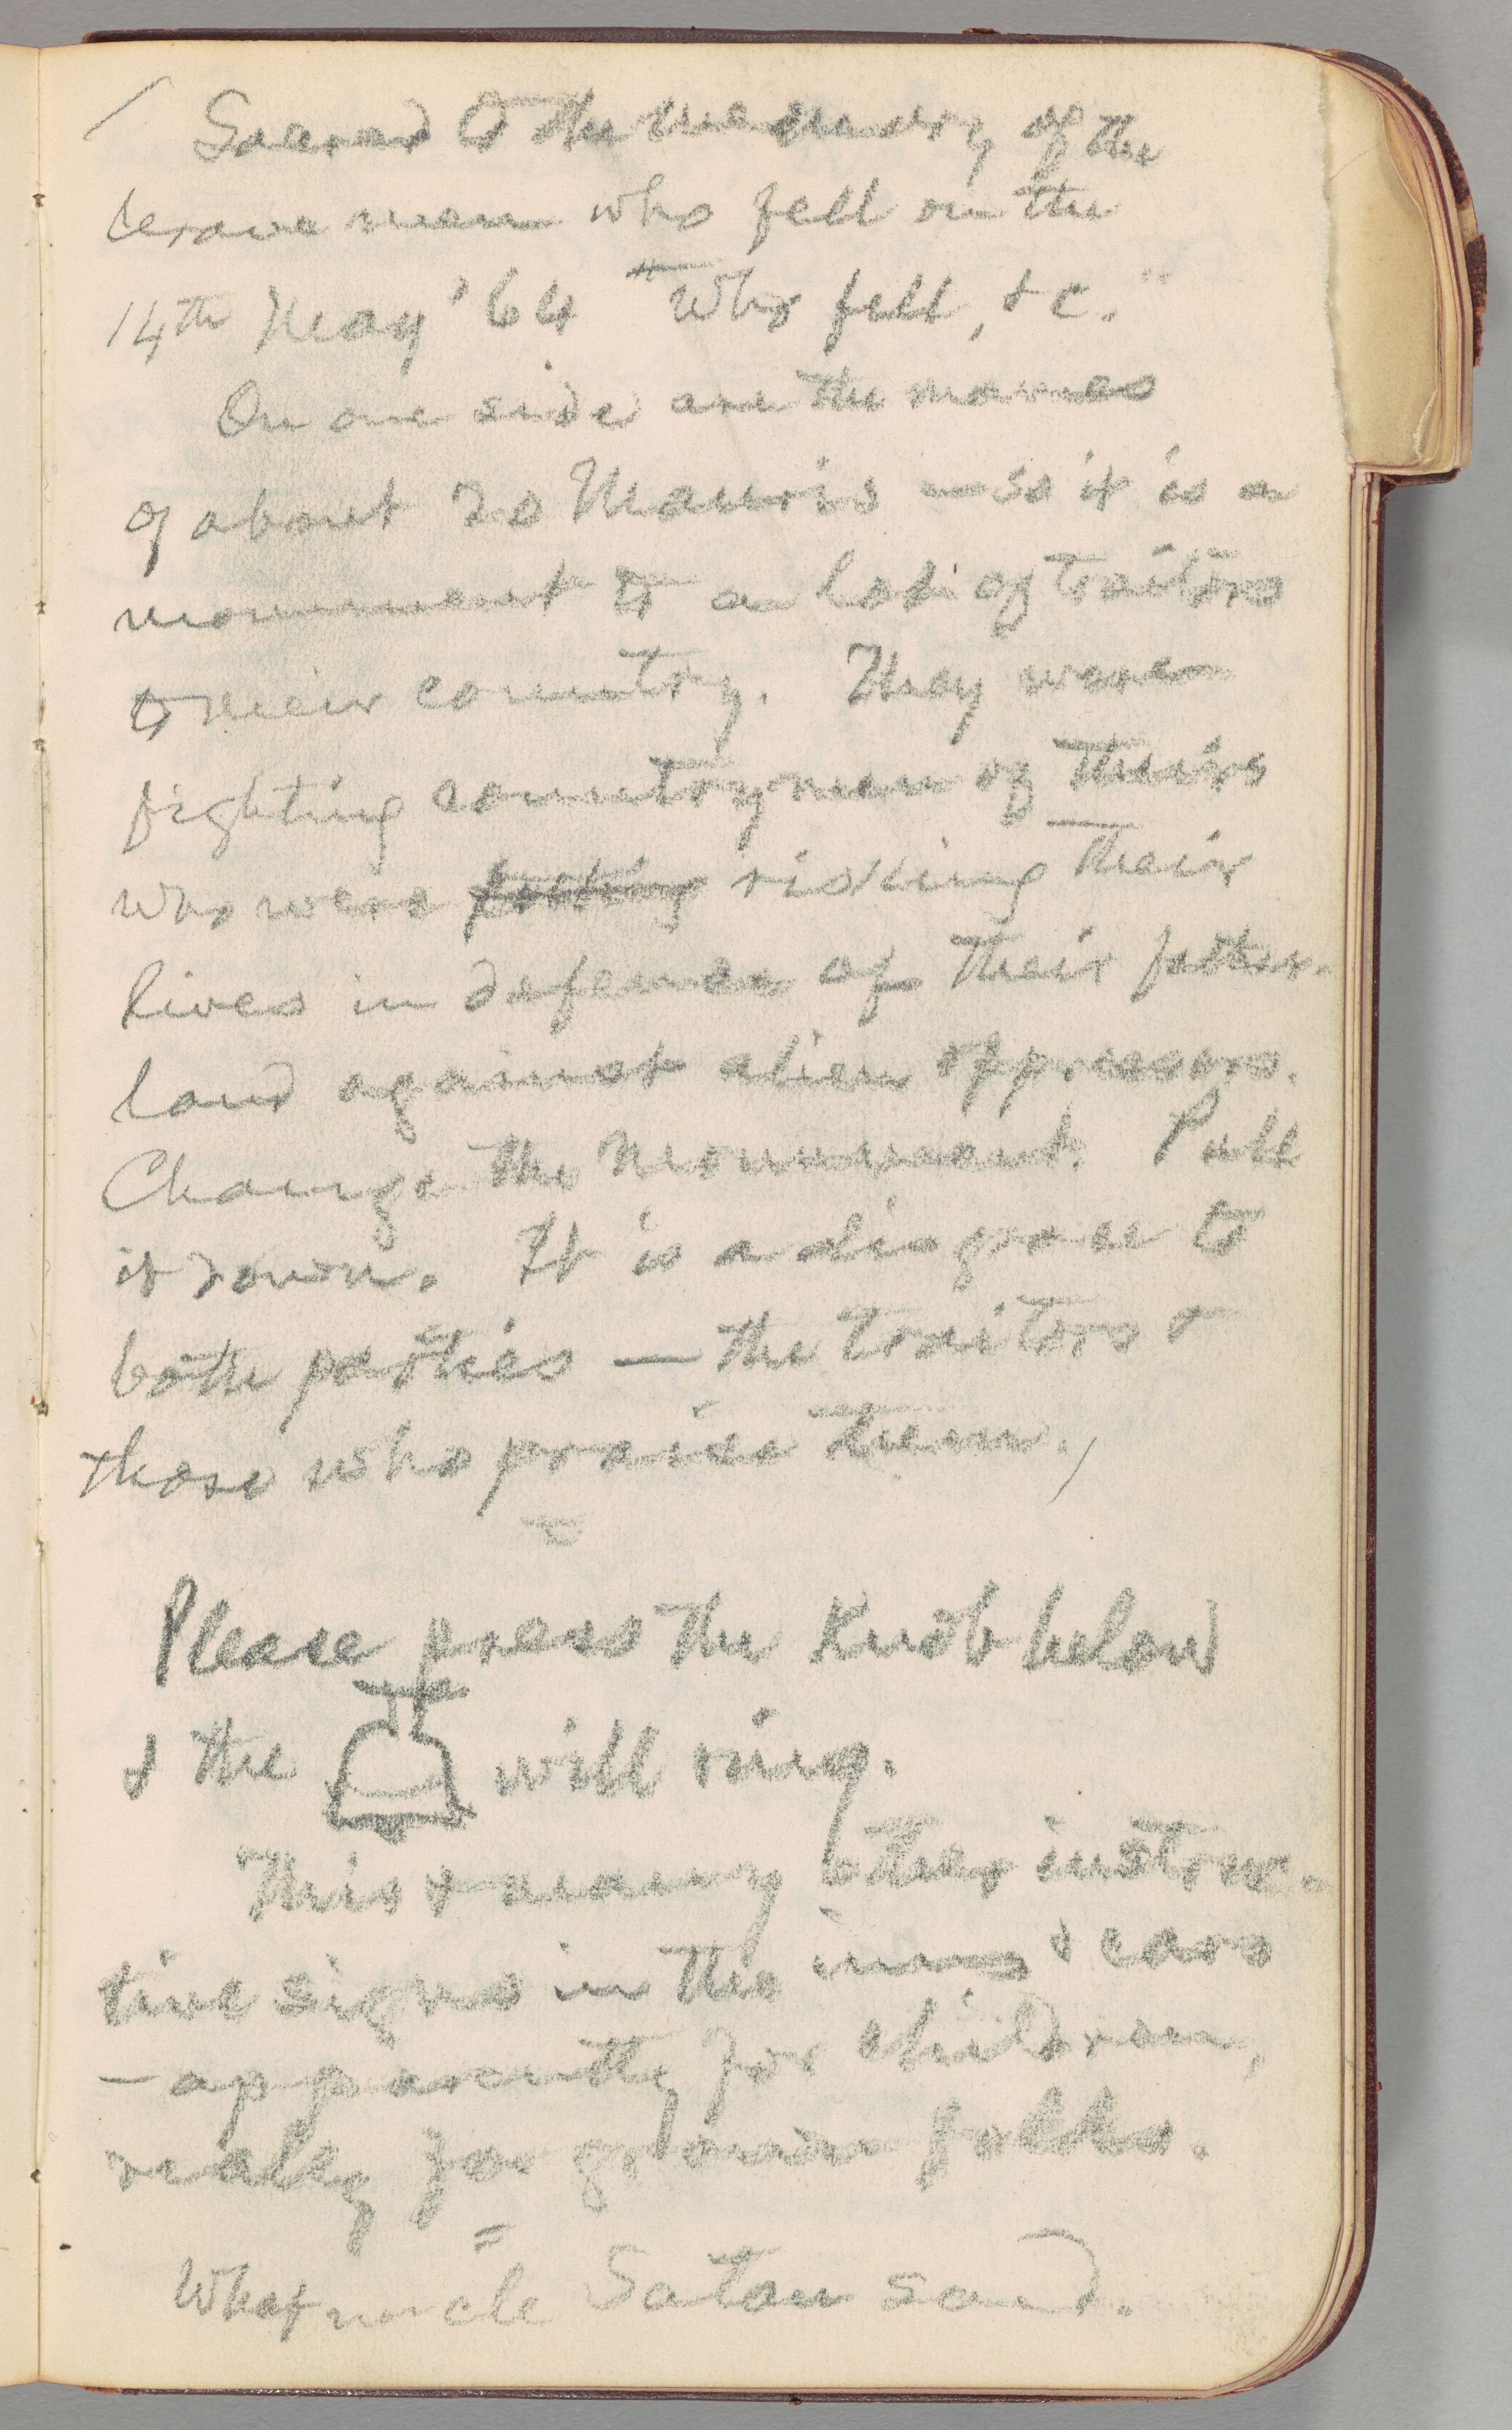 Sacred to the memory of the
brave men who fell on the
14th May '64 "Who fell, &c."
On one side are the names
of about 20 Mauris — so it is a
monument to a lot of traitors
to their country. They were
fighting countrymen of theirs
who were risking their
lives in defence of their father-
land against alien oppressors.
Change the monument. Pull
it down. It is a disgrace to
both parties — the traitors &
those who praise them.
Please press the Knob below
& the will ring.
This & many other instruc-
tive signs in the & cars
— apparently for children,
really for grown folks.
What uncle Satan said.